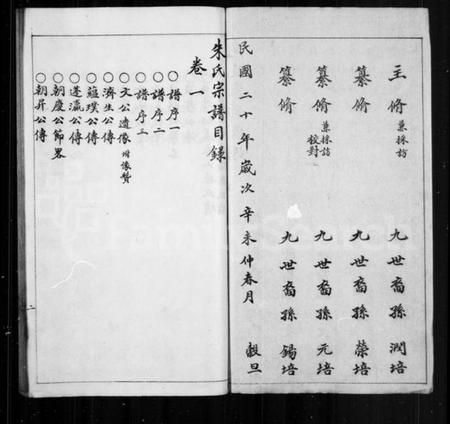 主脩 兼採訪 九世裔孫 潤培
纂脩 九世裔孫 榮培
纂脩 兼採訪 校對 九世裔孫 元培
纂脩 九世裔孫 錫培
民國二十年歲次辛未仲春月 穀旦
朱氏宗譜目錄
卷一
○譜序一
○譜序二
○譜序三
○文公遺像 附像贊
○濟生公傳
○蘊璞公傳
○蓬瀛公傳
○朝慶公節畧
○朝昇公傳
FamilySearch